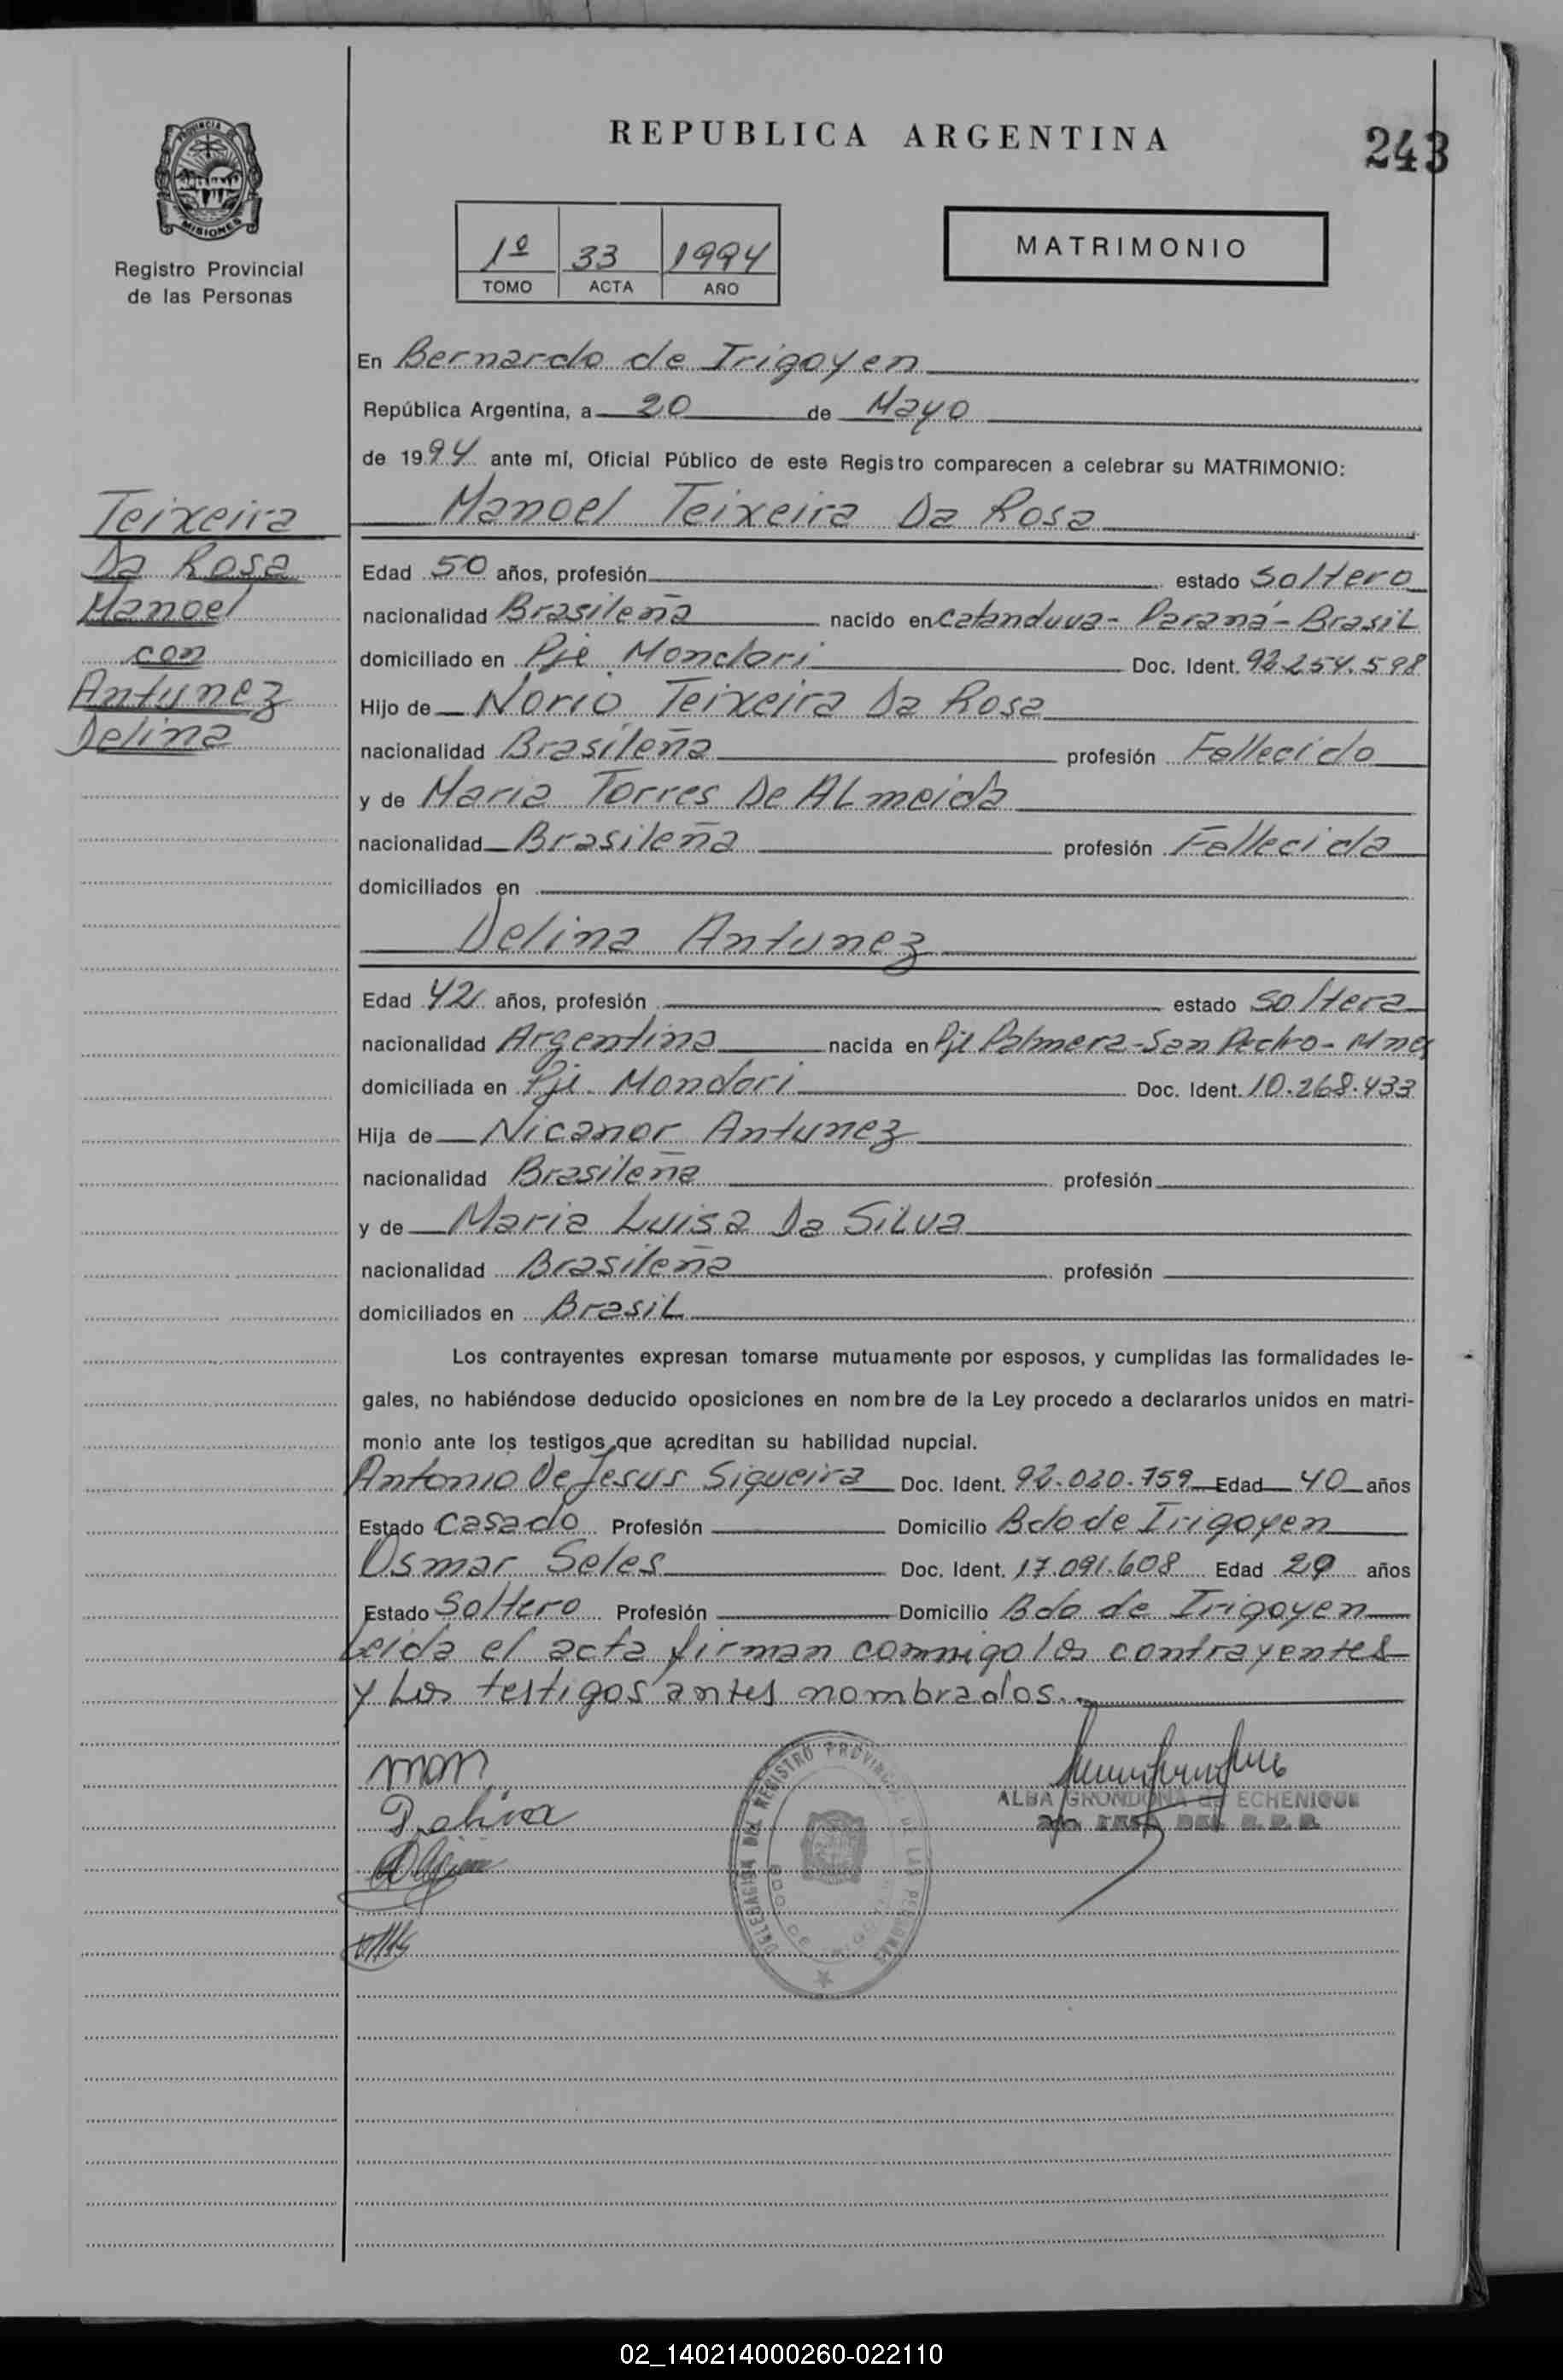 PROVINCIA DE
MISIONES
Registro Provincial
de las Personas
REPUBLICA ARGENTINA
243
1º 33 1994
TOMO ACTA AÑO
MATRIMONIO
En Bernardo de Irigoyen
República Argentina, a 20 de Mayo
de 1994 ante mí, Oficial Público de este Registro comparecen a celebrar su MATRIMONIO:
Teixeira
Da Rosa
Manoel
con
Antunez
Delina
Manoel Teixeira Da Rosa
Edad 50 años, profesión estado Soltero
nacionalidad Brasileña nacido en Catanduva - Paraná - Brasil
domiciliado en Pje Mondori Doc. Ident. 92.254.598
Hijo de Norio Teixeira Da Rosa
nacionalidad Brasileña profesión Fallecido
y de Maria Torres De ALmeida
nacionalidad Brasileña profesión Fallecida
domiciliados en
Delina Antunez
Edad 42 años, profesión estado Soltera
nacionalidad Argentina nacida en Pje Palmera - San Pedro - Mnes
domiciliada en Pje. Mondori Doc. Ident. 10.268.433
Hija de Nicanor Antunez
nacionalidad Brasileña profesión
y de Maria Luisa Da Silva
nacionalidad Brasileña profesión
domiciliados en Brasil
Los contrayentes expresan tomarse mutuamente por esposos, y cumplidas las formalidades le-
gales, no habiéndose deducido oposiciones en nombre de la Ley procedo a declararlos unidos en matri-
monio ante los testigos que acreditan su habilidad nupcial.
Antonio De Jesus Siqueira Doc. Ident. 92.020.759 Edad 40 años
Estado Casado Profesión Domicilio Bdo de Irigoyen
Osmar Seles Doc. Ident. 17.091.608 Edad 29 años
Estado Soltero Profesión Domicilio Bdo de Irigoyen
Leida el acta firman conmigo los contrayentes
y los testigos antes nombrados.
Delina
DELEGACION DEL REGISTRO PROVINCIAL DE LAS PERSONAS
BDO DE IRIGOYEN
ALBA GRONDONA de ECHENIQUE
02_140214000260-022110